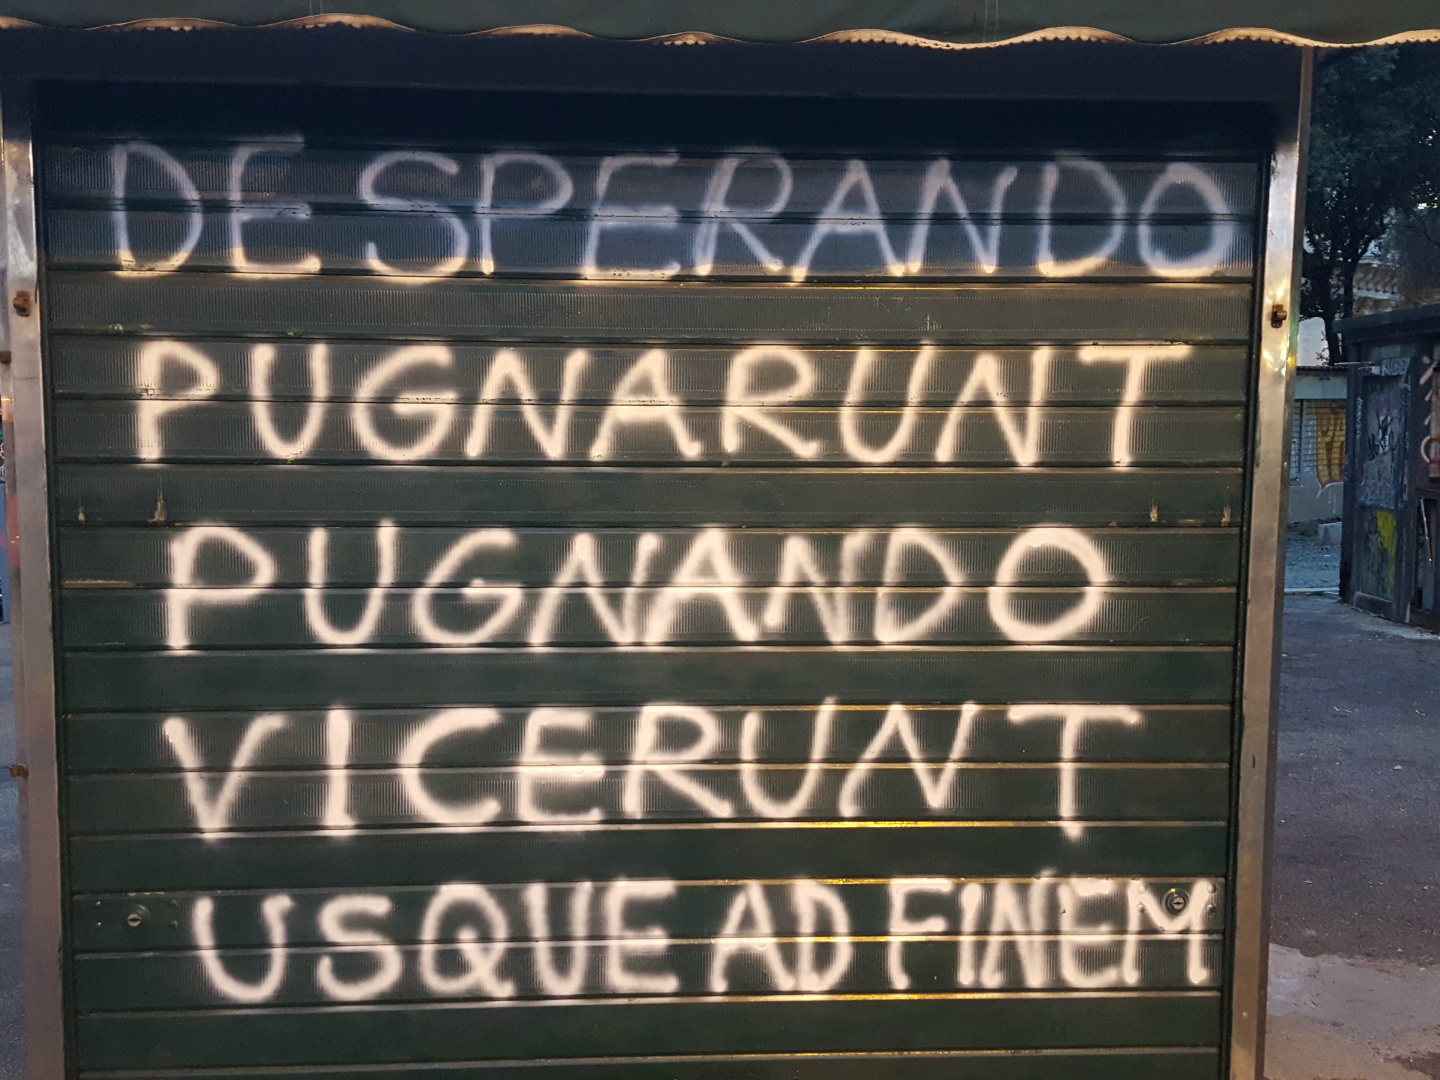 DESPERANDO
PUGNARUNT
PUGNANDO
VICERUNT
USQUE AD FINEM